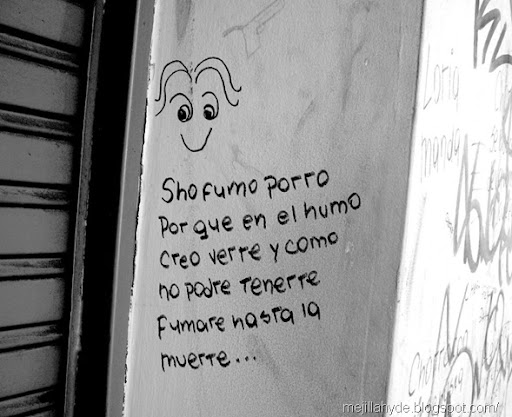 Sho fumo porro
Por que en el humo
creo verre y como
no podre tenerre
fumare hasta la
muerre...
Loria
manda
mejillahyde.blogspot.com/